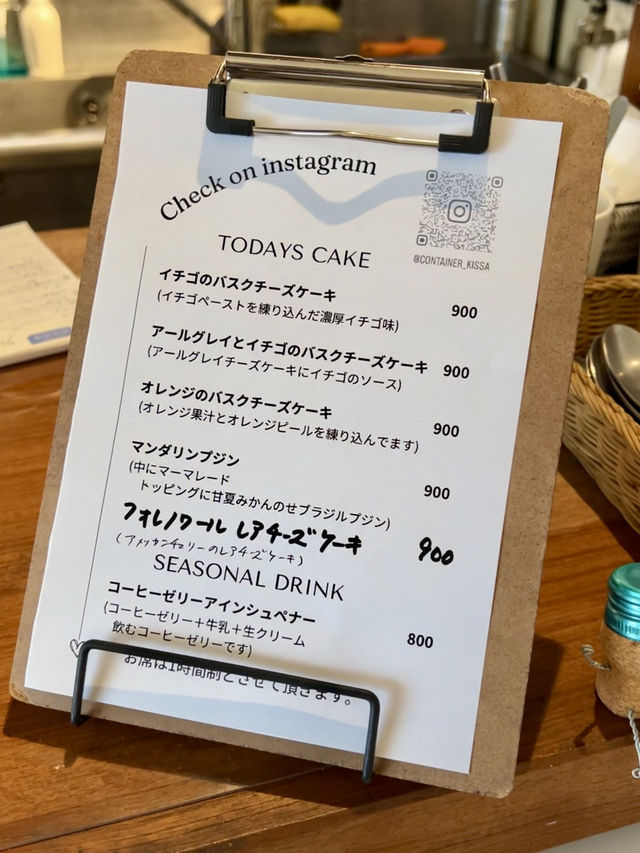 Check on instagram
@CONTAINER_KISSA
TODAYS CAKE
イチゴのバスクチーズケーキ 900
(イチゴペーストを練り込んだ濃厚イチゴ味)
アールグレイとイチゴのバスクチーズケーキ 900
(アールグレイチーズケーキにイチゴのソース)
オレンジのバスクチーズケーキ 900
(オレンジ果汁とオレンジピールを練り込んでます)
マンダリンプジン 900
(中にマーマレード
トッピングに甘夏みかんのせブラジルプジン)
フォレノワール レアチーズケーキ 900
(アメリカンチェリーのレアチーズケーキ)
SEASONAL DRINK
コーヒーゼリーアインシュペナー 800
(コーヒーゼリー+牛乳+生クリーム
飲むコーヒーゼリーです)
お席は1時間制とさせて頂きます。